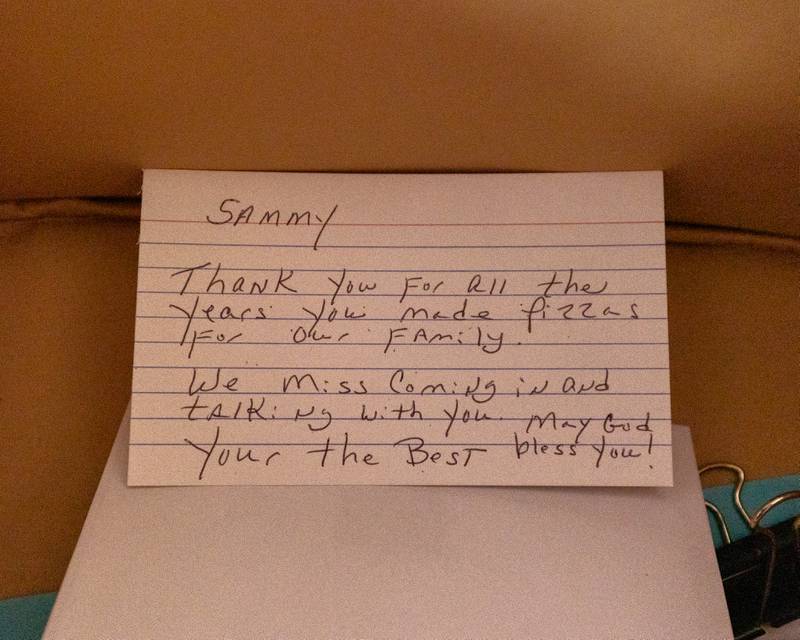 SAMMY
Thank you for all the
years you made pizzas
for our family.
We miss coming in and
talking with you. May God
Your the Best bless you!